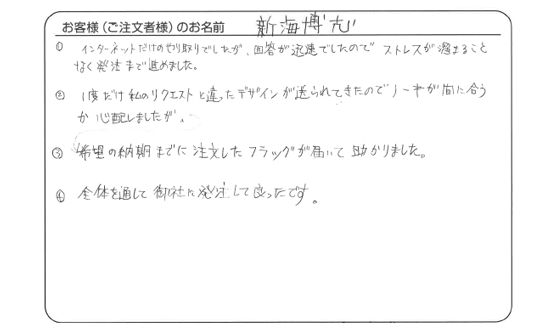 お客様（ご注文者様）のお名前 新海博志
① インターネットだけのやり取りでしたが、回答が迅速でしたので ストレスが溜まること
なく発注まで進めました。
② 1度だけ私のリクエストと違ったデザインが送られてきたので が間に合う
か心配しましたが、
③ 希望の納期までに注文したフラッグが届いて助かりました。
④ 全体を通して御社に発注して良ったです。